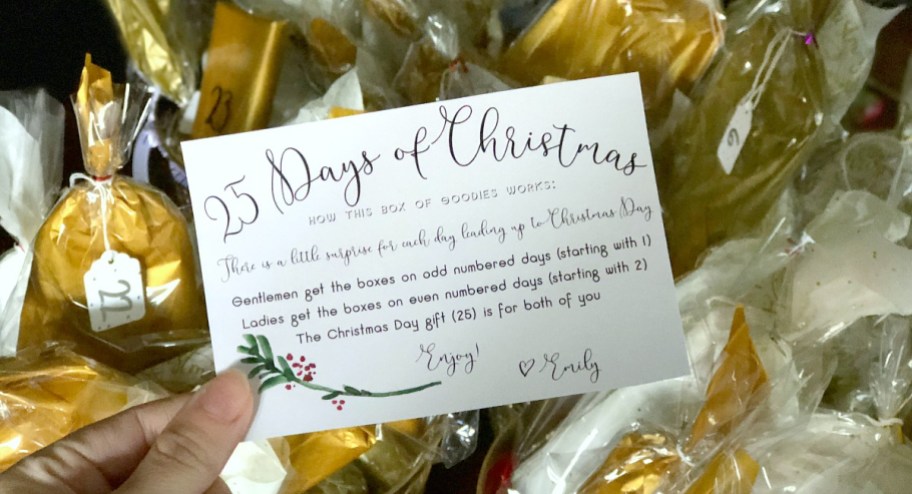 23
9
25 Days of Christmas
HOW THIS BOX OF GOODIES WORKS:
There is a little surprise for each day leading up to Christmas Day
Gentlemen get the boxes on odd numbered days (starting with 1)
Ladies get the boxes on even numbered days (starting with 2)
The Christmas Day gift (25) is for both of you
Enjoy!
♡ Emily